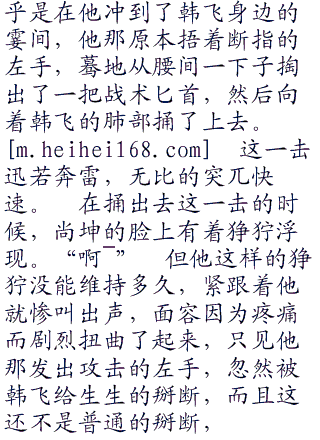 乎是在他冲到了韩飞身边的
霎间，他那原本捂着断指的
左手，蓦地从腰间一下子掏
出了一把战术匕首，然后向
着韩飞的肺部捅了上去。
[m.heihei168.com]　这一击
迅若奔雷，无比的突兀快
速。　在捅出去这一击的时
候，尚坤的脸上有着狰狞浮
现。“啊¯”　但他这样的狰
狞没能维持多久，紧跟着他
就惨叫出声，面容因为疼痛
而剧烈扭曲了起来，只见他
那发出攻击的左手，忽然被
韩飞给生生的掰断，而且这
还不是普通的掰断，